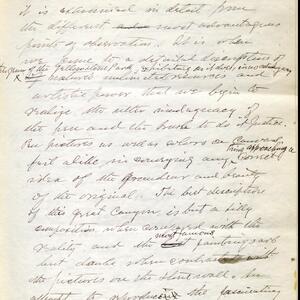 it is examined in detail from
the different most advantageous
points of observation. It is when
we come to a detailed description of
nature's unlimited resources and
artistic power that we begin to
realize the utter inadequacy of
the pen and the brush to do it justice.
Pen pictures as well as colors on Canvas
fail alike in conveying any
thing approaching a correct
idea of the grandeur and beauty
of the original. The best description
of this great Canyon is but a
composition when compared with the
reality and the most famous paintings are
but daubs when contrasted with
the pictures on the stone wall. An
attempt to reproduce the fascinating